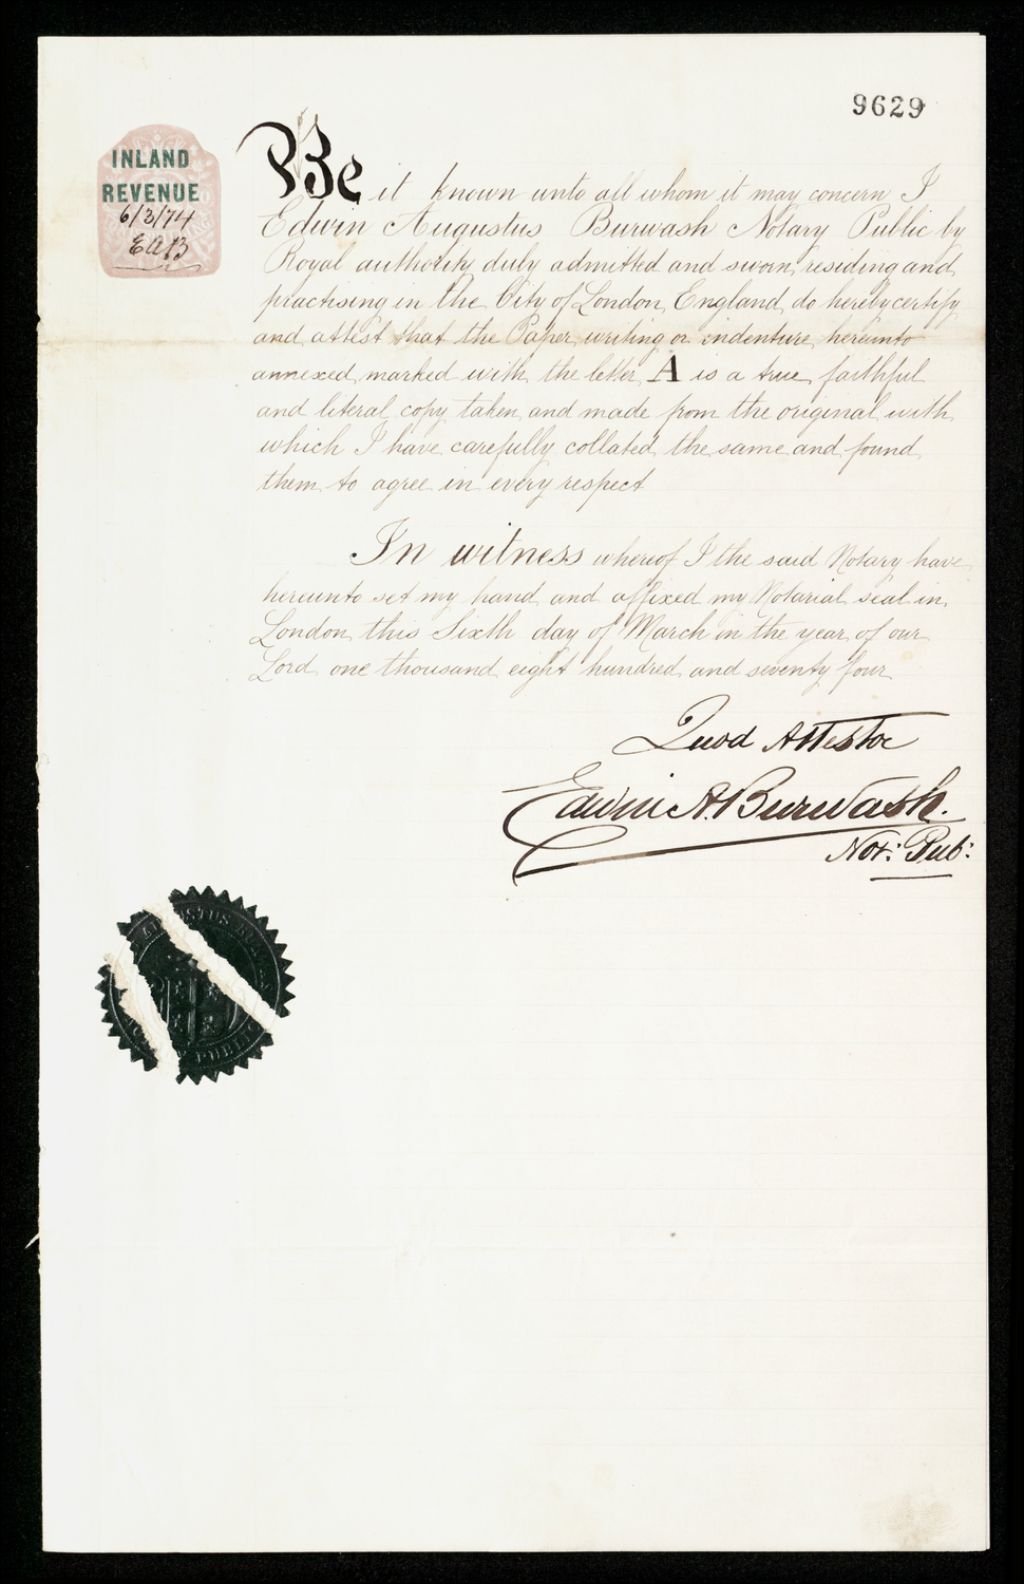 9629
INLAND
REVENUE
6/3/74
EAB
Be it known unto all whom it may concern I
Edwin Augustus Burwash Notary Public by
Royal authority duly admitted and sworn, residing and
practising in the City of London, England, do hereby certify
and attest that the Paper writing or indenture hereunto
annexed marked with the letter A is a true faithful
and literal copy taken and made from the original with
which I have carefully collated the same and found
them to agree in every respect
In witness whereof I the said Notary have
hereunto set my hand and affixed my Notarial seal in
London this Sixth day of March in the year of our
Lord one thousand eight hundred and seventy four
Quod Attestor
Edwin A. Burwash.
Not: Pub:
PUBLIC